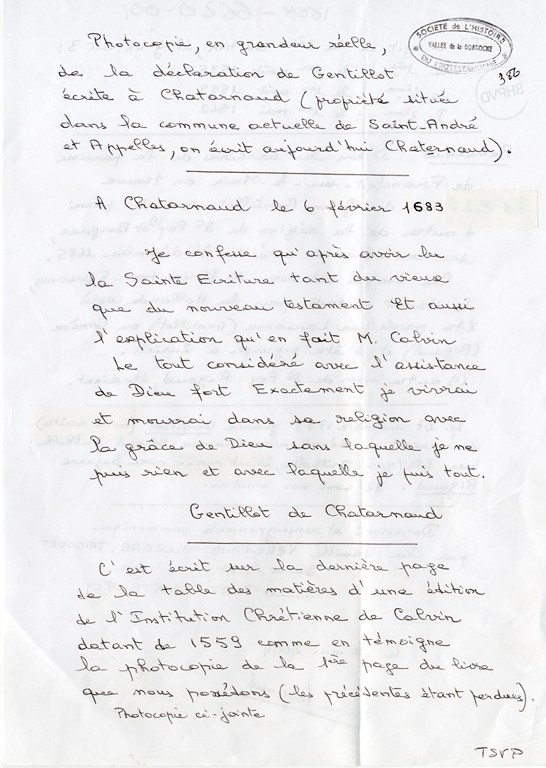 SOCIÉTÉ de L'HISTOIRE
VALLÉE de la DORDOGNE
DU PROTESTANTISME
SHPVD
Photocopie, en grandeur réelle,
de la déclaration de Gentillot
écrite à Chatarnaud (propriété située
dans la commune actuelle de Saint-André
et Appelles, on écrit aujourd'hui Chaternaud).
A Chatarnaud le 6 février 1683
Je confesse qu'après avoir lu
la Sainte Ecriture tant du vieux
que du nouveau testament Et aussi
l'explication qu'en fait M. Calvin
Le tout considéré avec l'assistance
de Dieu fort Exactement je vivrai
et mourrai dans sa religion avec
la grâce de Dieu sans laquelle je ne
puis rien et avec laquelle je puis tout.
Gentillot de Chatarnaud
C'est écrit sur la dernière page
de la table des matières d'une édition
de l'Institution Chrétienne de Calvin
datant de 1559 comme en témoigne
la photocopie de la 1ère page du livre
que nous possédons (les précédentes étant perdues).
Photocopie ci-jointe
TSVP